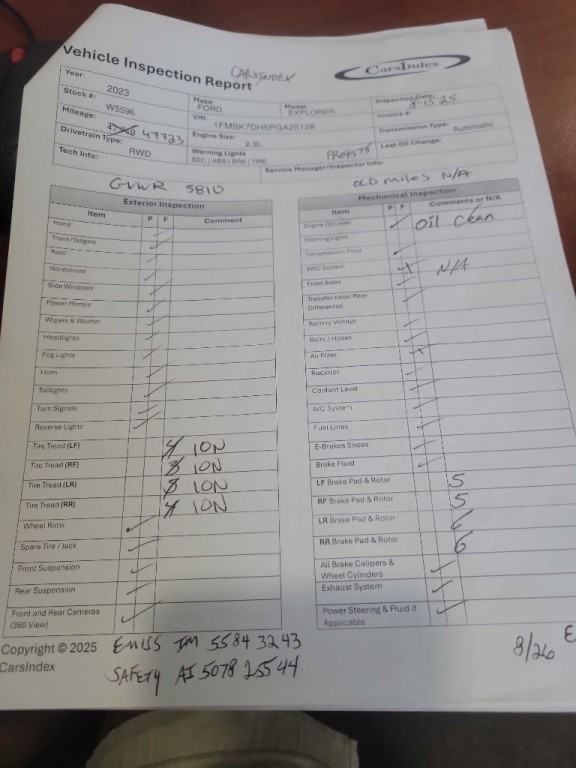 Vehicle Inspection Report
CARSINDEX
CarsIndex
Year: 2023
Make: FORD
Model: EXPLORER
Inspection Date: 8-15-25
Stock #: W5596
VIN:
Invoice #:
Mileage: 47723
Engine Size: 2.3L
Transmission Type: Automatic
Drivetrain Type: RWD
Warning Lights
SEC | ABS | BRK | TIRE
Last Oil Change:
Tech Info:
Service Manager/Inspector Info:
GVWR 5810
OLD miles N/A
Exterior Inspection
Item P F Comment
Hood
Trunk/Tailgate
Roof
Windshield
Side Windows
Power Mirrors
Wipers & Washer
Headlights
Fog Lights
Horn
Taillights
Turn Signals
Reverse Lights
Tire Tread (LF) ION
Tire Tread (RF) ION
Tire Tread (LR) ION
Tire Tread (RR) ION
Wheel Rims
Spare Tire / Jack
Front Suspension
Rear Suspension
Front and Rear Cameras
(360 View)
Mechanical Inspection
Item P F Comments or N/A
Engine Oil Level Oil Clean
Warning Lights
Transmission Fluid
4WD System N/A
Front Axles
Transfer case/ Rear
Differential
Battery Voltage
Belts / Hoses
Air Filter
Radiator
Coolant Level
A/C System
Fuel Lines
E-Brakes Shoes
Brake Fluid
LF Brake Pad & Rotor 5
RF Brake Pad & Rotor 5
LR Brake Pad & Rotor 6
RR Brake Pad & Rotor 6
All Brake Calipers &
Wheel Cylinders
Exhaust System
Power Steering & Fluid if
Applicable
Copyright © 2025
CarsIndex
EMISS IM 5584 3243
SAFETY AI 5078 2544
8/26
E